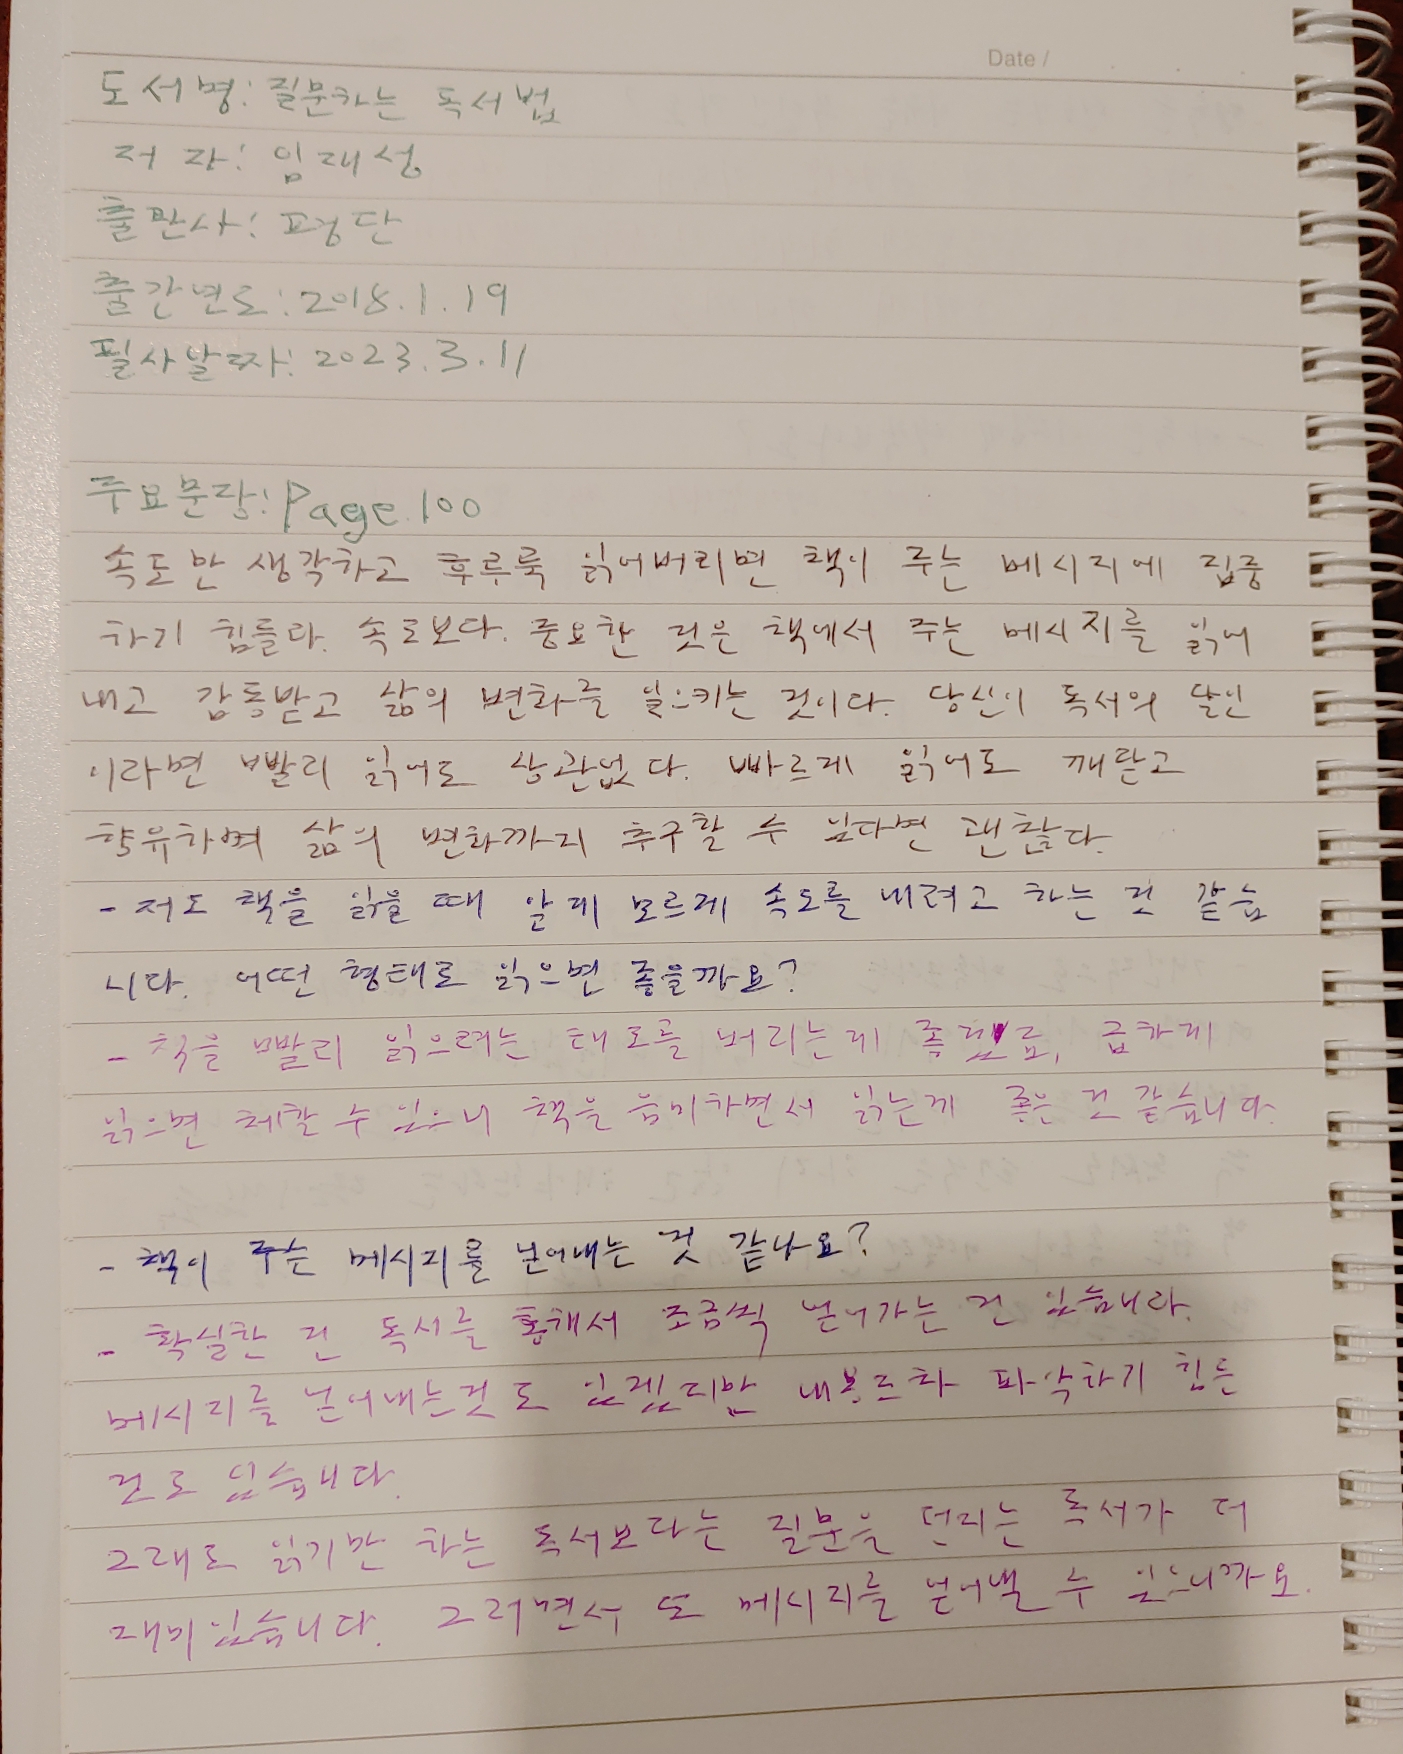 Date /
도서명: 질문하는 독서법
저 자: 임재성
출판사: 평단
출간년도: 2018.1.19
필사날짜: 2023.3.11
주요문장: Page.100
속도만 생각하고 후루룩 읽어버리면 책이 주는 메시지에 집중
하기 힘들다. 속도보다. 중요한 것은 책에서 주는 메시지를 읽어
내고 감동받고 삶의 변화를 일으키는 것이다. 당신이 독서의 달인
이라면 빨리 읽어도 상관없다. 빠르게 읽어도 깨닫고
향유하며 삶의 변화까지 추구할 수 있다면 괜찮다.
- 저도 책을 읽을 때 알게 모르게 속도를 내려고 하는 건 같습
니다. 어떤 형태로 읽으면 좋을까요?
- 책을 빨리 읽으려는 태도를 버리는게 좋겠죠, 급하게
읽으면 체할 수 있으니 책을 음미하면서 읽는게 좋은 건 같습니다.
- 책이 주는 메시지를 얻어내는 것 같나요?
- 확실한 건 독서를 통해서 조금씩 얻어가는 건 있습니다.
메시지를 얻어내는것도 있겠지만 내 파악하기 힘든
건도 있습니다.
그래도 읽기만 하는 독서보다는 질문을 던지는 독서가 더
재미있습니다. 그러면서 또 메시지를 얻어낼 수 있으니까요.